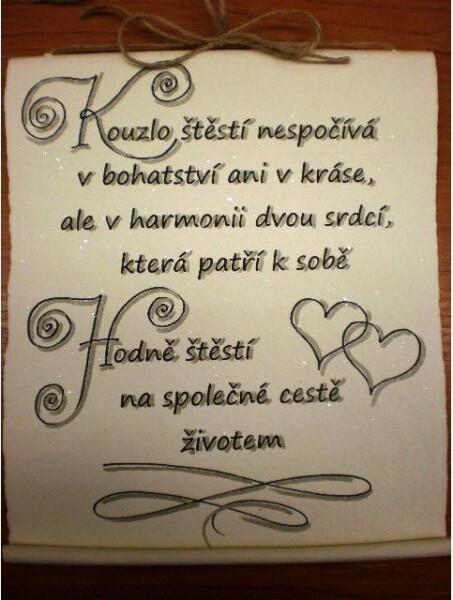 Kouzlo štěstí nespočívá
v bohatství ani v kráse,
ale v harmonii dvou srdcí,
která patří k sobě
Hodně štěstí
na společné cestě
životem